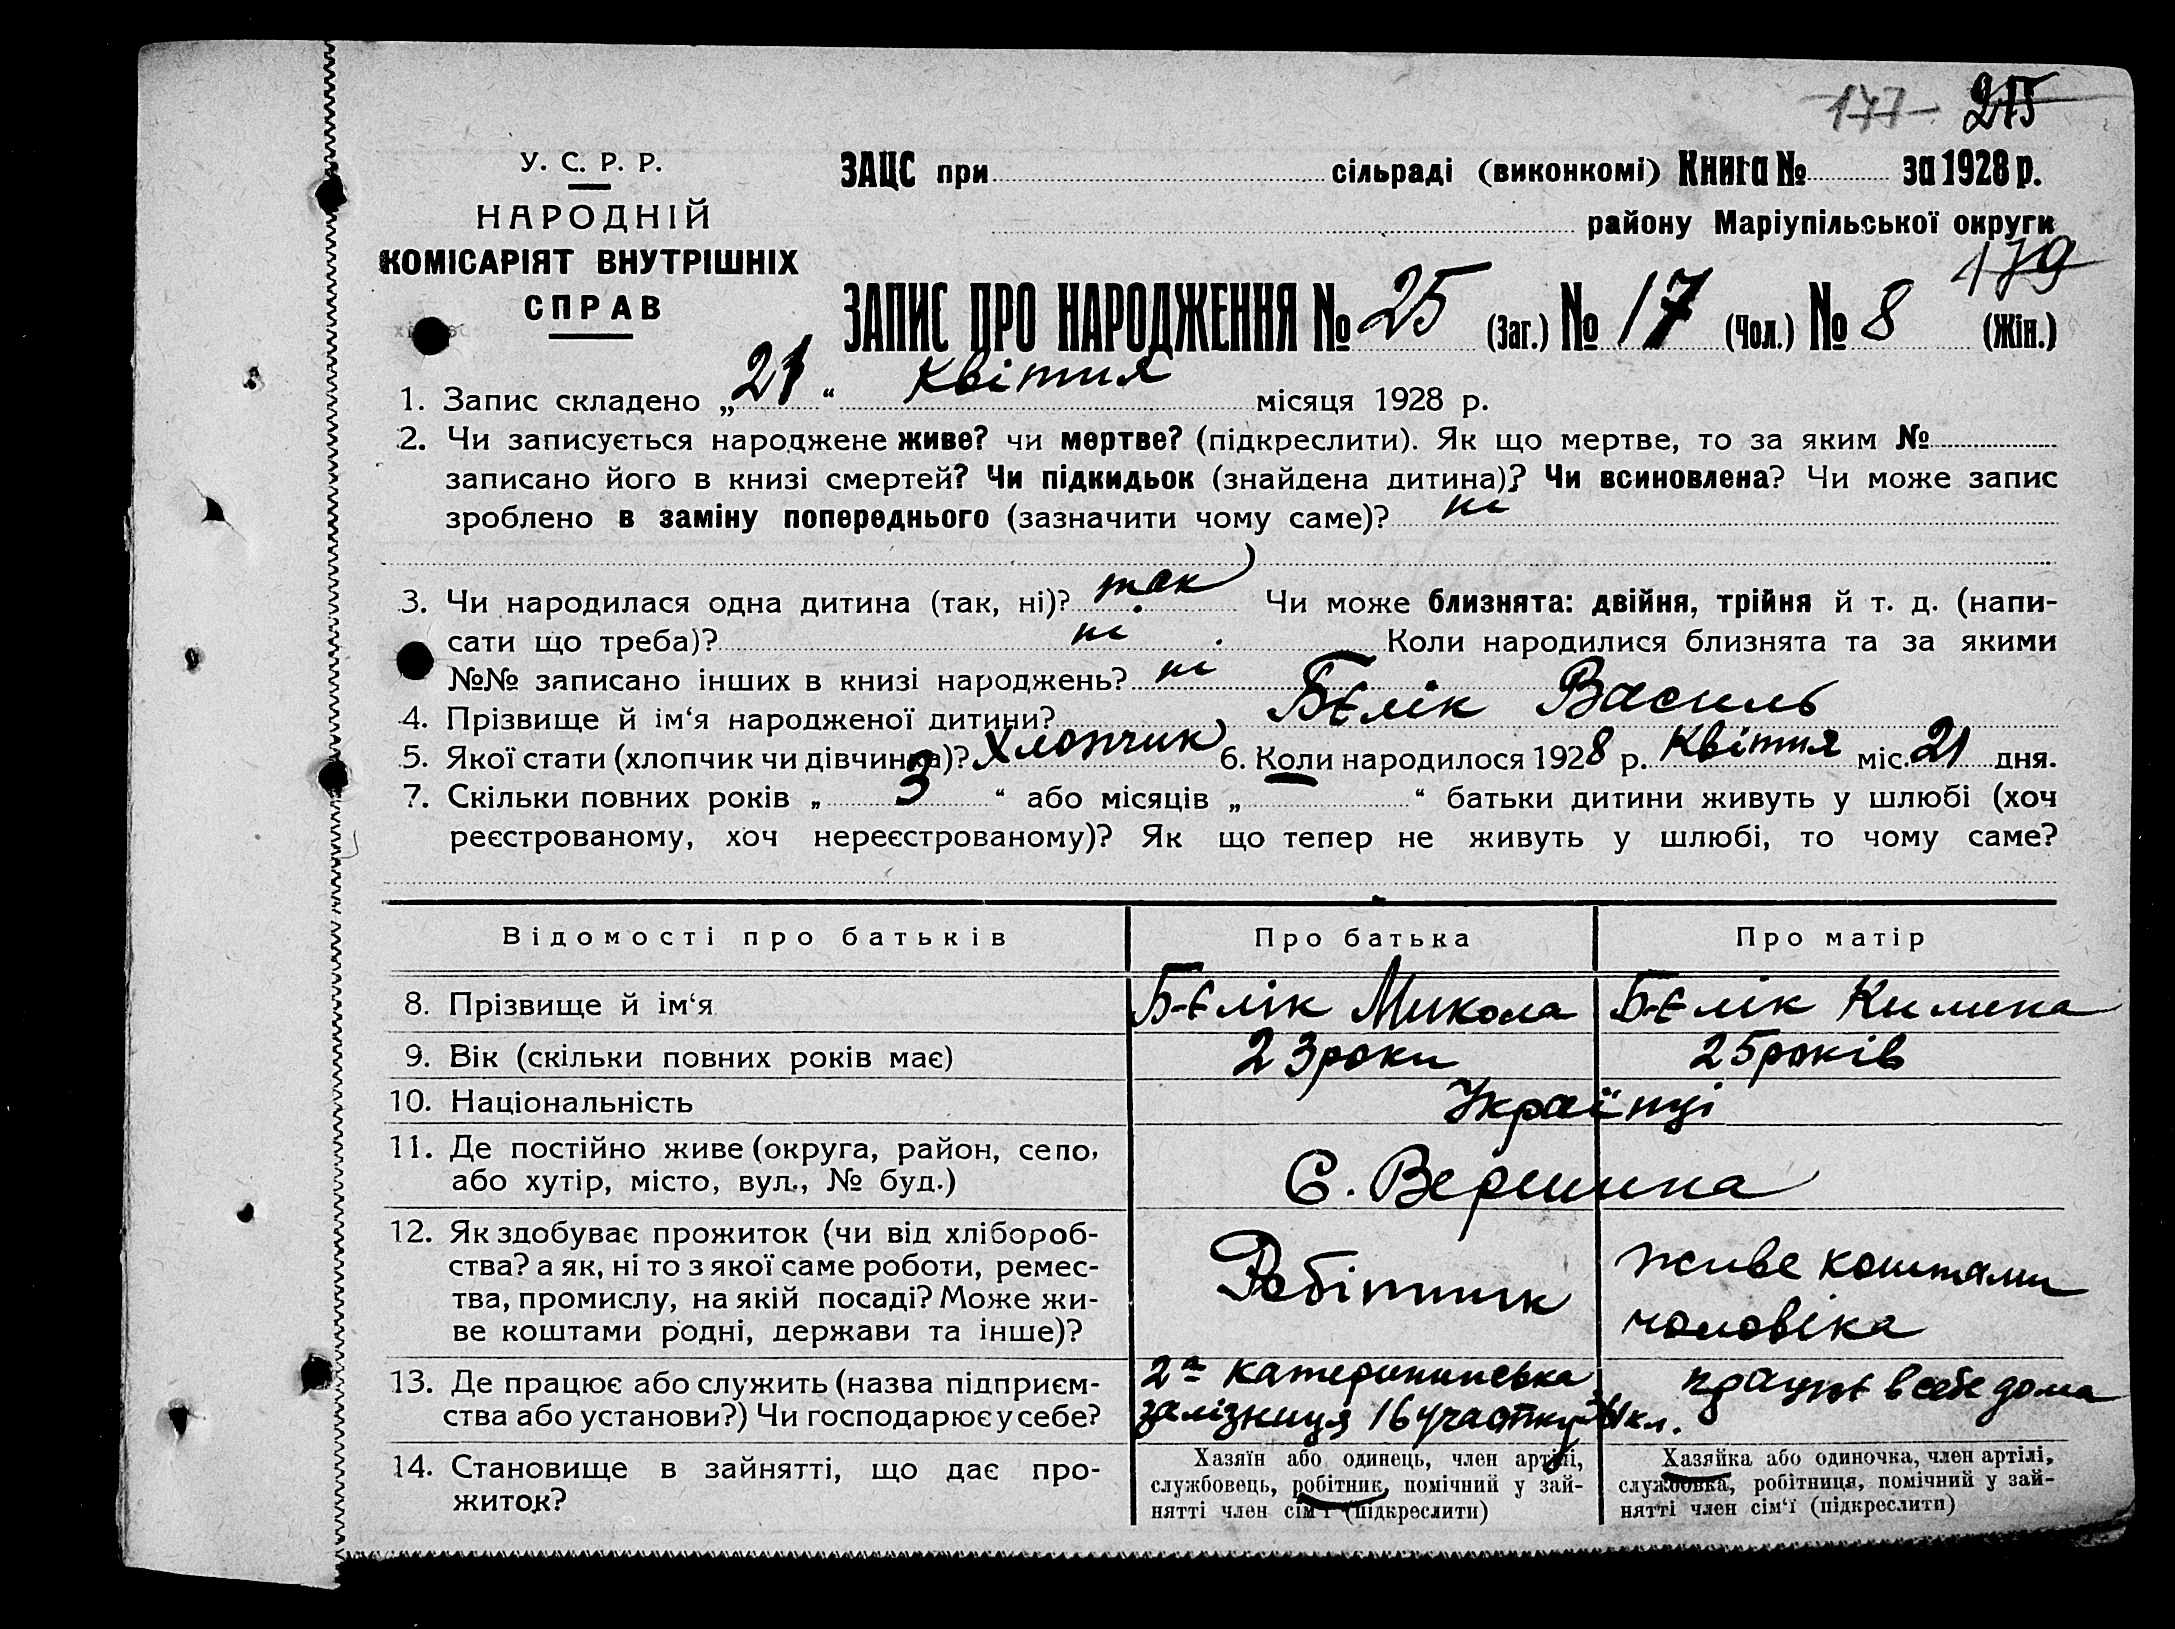 177 215
У. С. Р. Р.
НАРОДНІЙ
КОМІСАРІЯТ ВНУТРІШНІХ
СПРАВ
ЗАЦС при сільраді (виконкомі) Книга № за 1928 р.
району Маріупільської округи
179
ЗАПИС ПРО НАРОДЖЕННЯ № 25 (Заг.) № 17 (Чол.) № 8 (Жін.)
1. Запис складено „21“ Квітня місяця 1928 р.
2. Чи записується народжене живе? чи мертве? (підкреслити). Як що мертве, то за яким №
записано його в книзі смертей? Чи підкидьок (знайдена дитина)? Чи всиновлена? Чи може запис
зроблено в заміну попереднього (зазначити чому саме)? ні
3. Чи народилася одна дитина (так, ні)? так Чи може близнята: двійня, трійня й т. д. (напи-
сати що треба)? ні Коли народилися близнята та за якими
№№ записано інших в книзі народжень? ні
4. Прізвище й ім‘я народженої дитини? Бєлік Василь
5. Якої стати (хлопчик чи дівчинка)? Хлопчик 6. Коли народилося 1928 р. Квітня міс. 21 дня.
7. Скільки повних років „ 3 “ або місяців „ “ батьки дитини живуть у шлюбі (хоч
реєстрованому, хоч нереєстрованому)? Як що тепер не живуть у шлюбі, то чому саме?
Відомості про батьків Про батька Про матір
8. Прізвище й ім‘я Бєлік Микола Бєлік Килина
9. Вік (скільки повних років має) 23 роки 25 років
10. Національність Українці
11. Де постійно живе (округа, район, село,
або хутір, місто, вул., № буд.) С. Вершина
12. Як здобуває прожиток (чи від хлібороб-
ства? а як, ні то з якої саме роботи, ремес-
тва, промислу, на якій посаді? Може жи-
ве коштами родні, держави та інше)?
Робітник
живе коштами
чоловіка
13. Де працює або служить (назва підприєм-
ства або установи?) Чи господарює у себе?
2а Катерининська
залізниця 16 участку
кл.
працює в себе дома
14. Становище в зайнятті, що дає про-
житок?
Хазяїн або одинець, член артілі,
службовець, робітник, помічний у зай-
нятті член сім‘ї (підкреслити)
Хазяйка або одиночка, член артілі,
службовка, робітниця, помічний у зай-
нятті член сім‘ї (підкреслити)